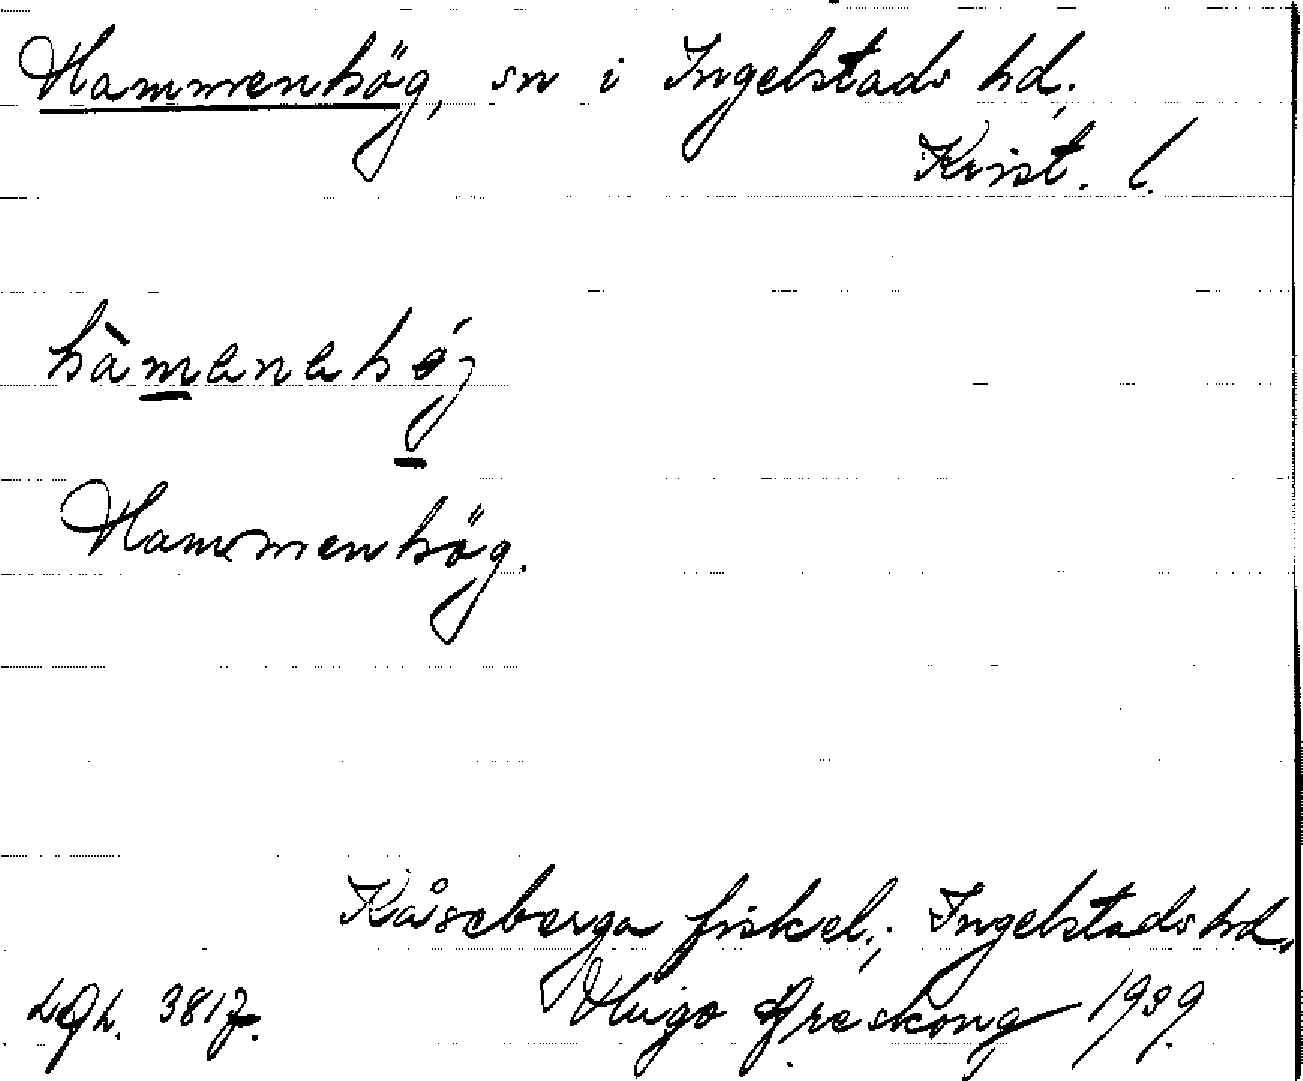 Hammenhög, sn i Ingelstads hd,
Krist. l.
hàmenehǿj
Hammenhög.
Kåseberga fiskel.; Ingelstads hd.
Hugo Areskoug 1939.
LGL. 3817.